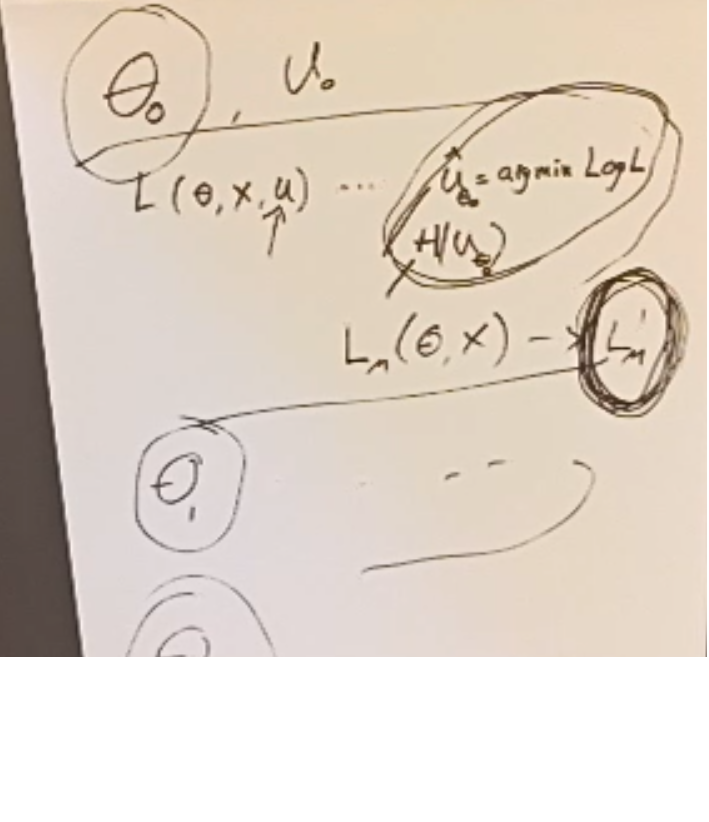 θ₀, U₀
L(θ, x, u) ... û_θ₀ = argmin Log L
H(u_θ₀)
L_M(θ, x) → L'_M
θ₁ - -